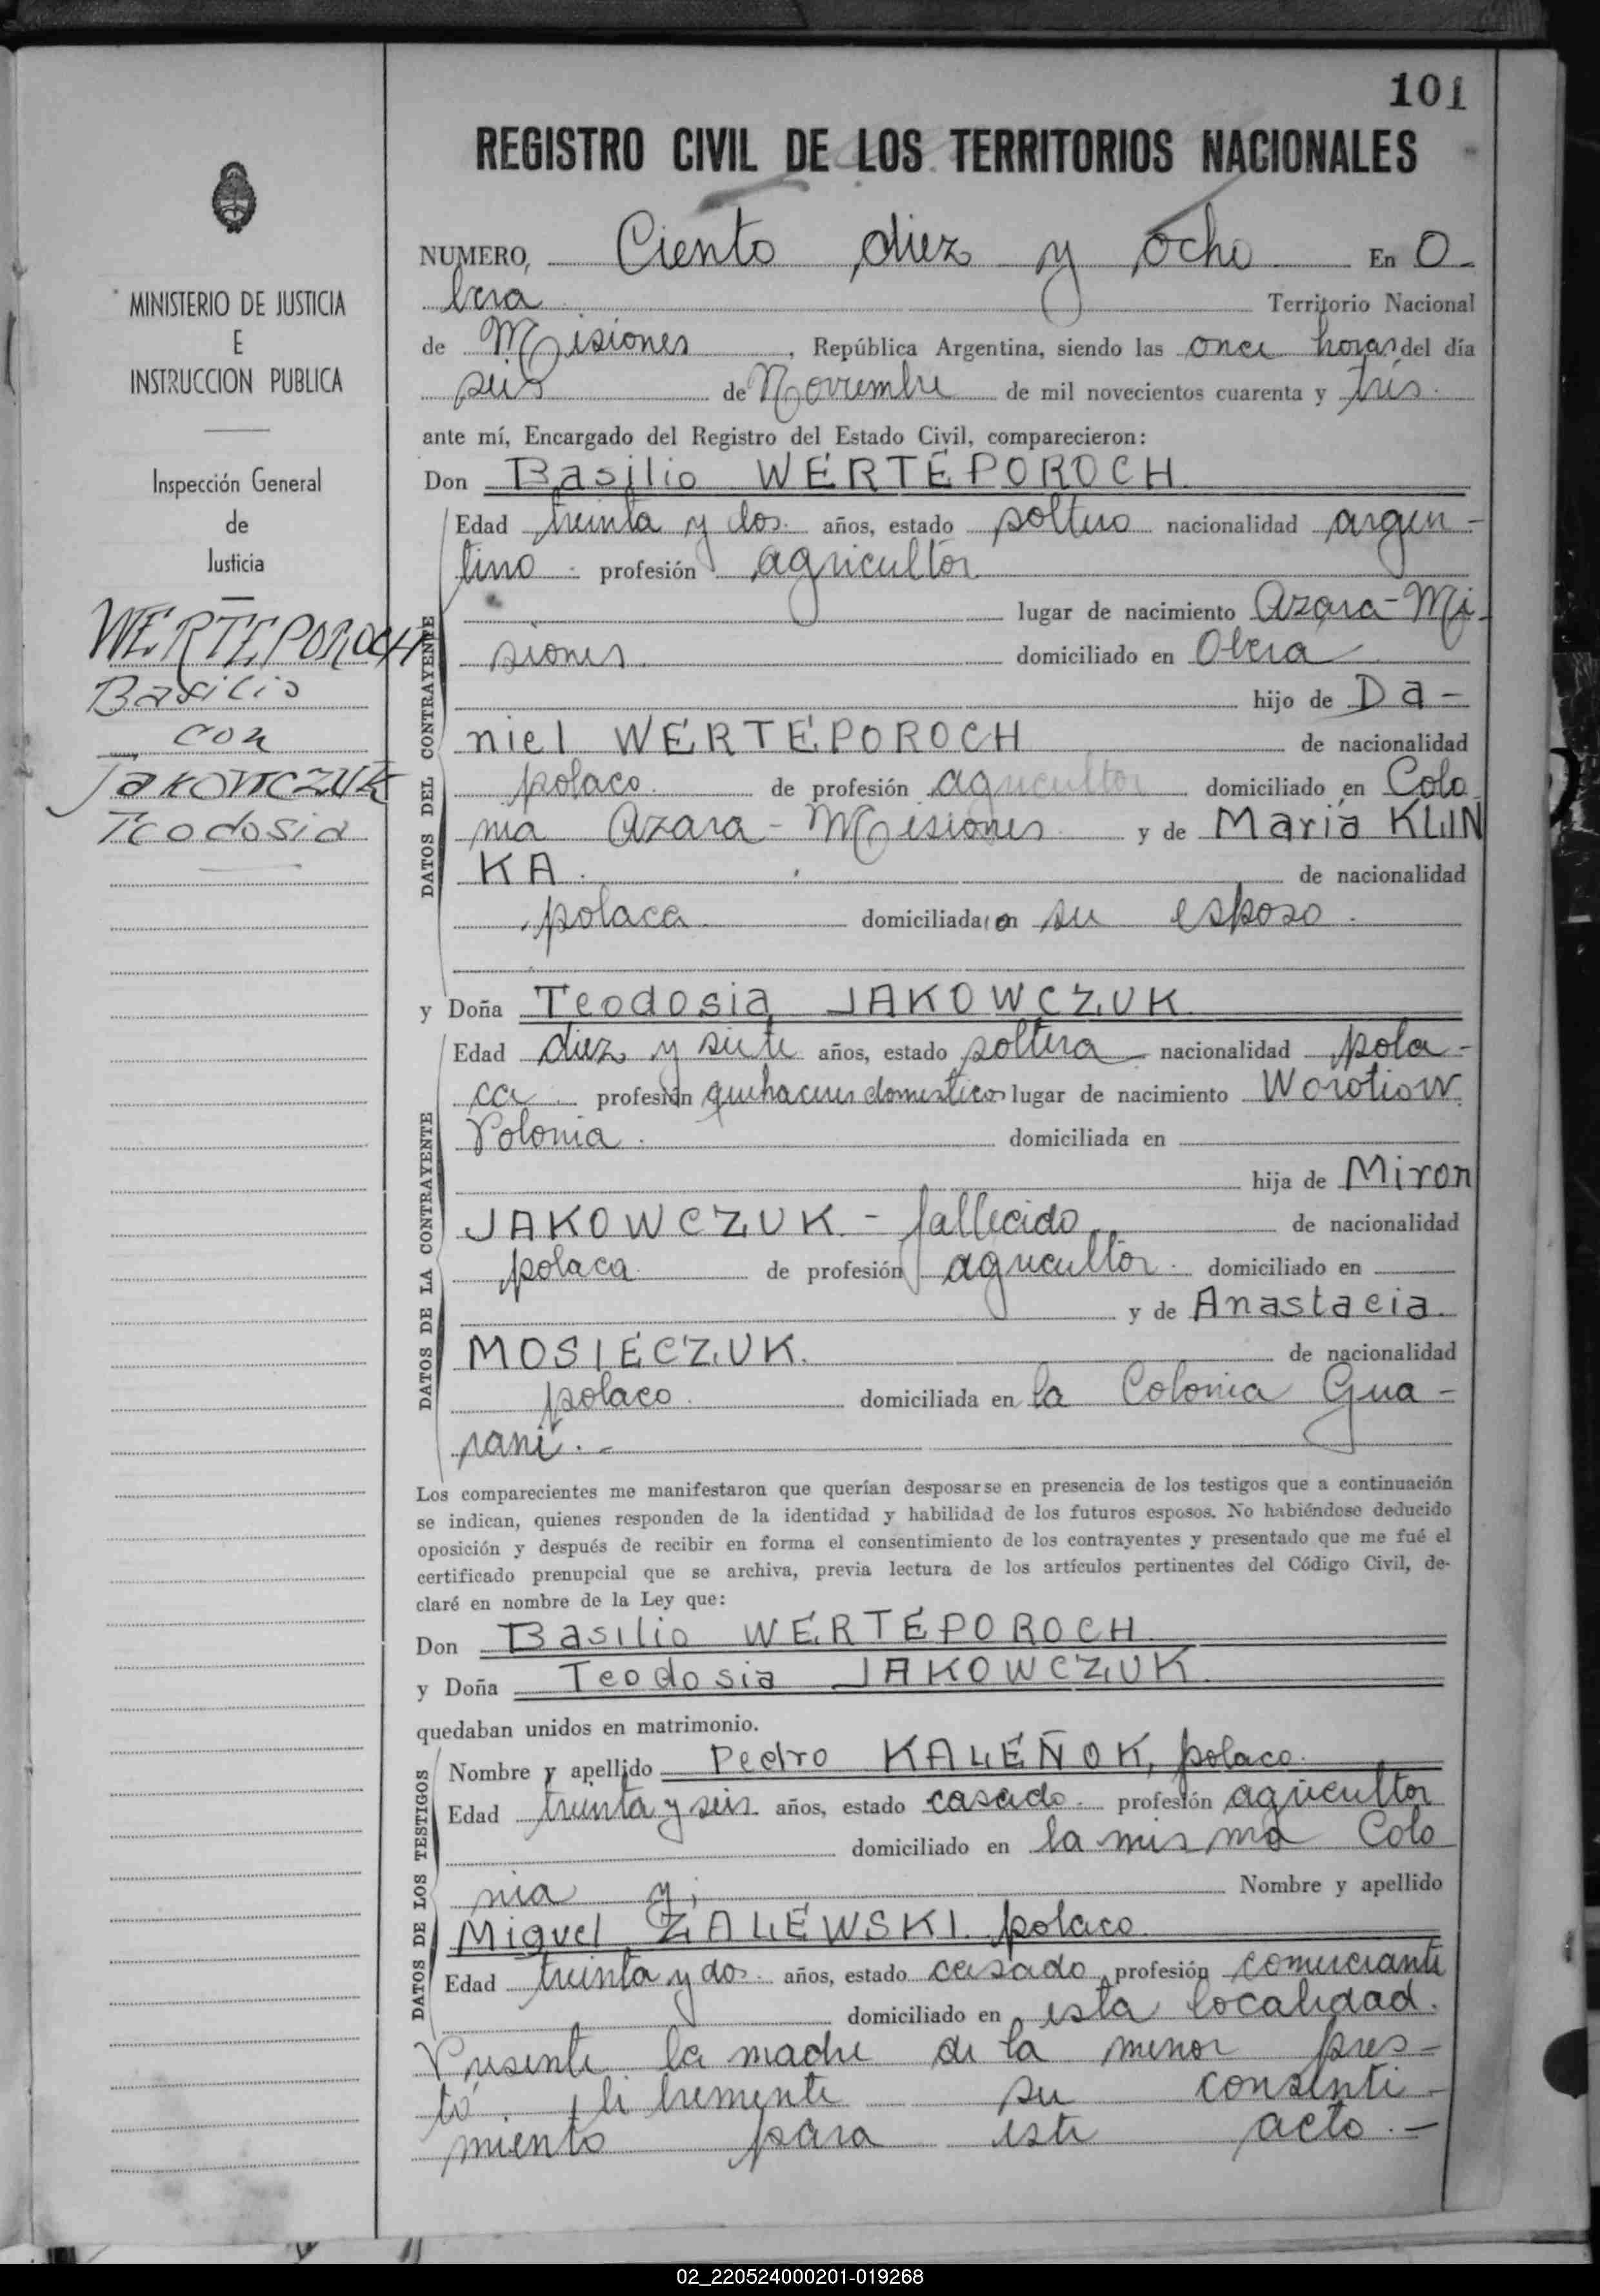 101
REGISTRO CIVIL DE LOS TERRITORIOS NACIONALES
MINISTERIO DE JUSTICIA
E
INSTRUCCION PUBLICA
Inspección General
de
Justicia
WERTEPOROCH
Basilio
con
Jakowczuk
Teodosia
NUMERO, Ciento diez y ocho En O-
bera Territorio Nacional
de Misiones, República Argentina, siendo las once horas del día
seis de Noviembre de mil novecientos cuarenta y tres.
ante mí, Encargado del Registro del Estado Civil, comparecieron:
Don Basilio WERTEPOROCH.
DATOS DEL CONTRAYENTE
Edad treinta y dos. años, estado soltero nacionalidad argen-
tino. profesión agricultor
lugar de nacimiento Azara-Mi-
siones. domiciliado en Obera
hijo de Da-
niel WERTEPOROCH de nacionalidad
polaco. de profesión agricultor domiciliado en Colo
nia Azara - Misiones y de Maria KLIN
KA. de nacionalidad
polaca domiciliada en su esposo.
y Doña Teodosia JAKOWCZUK.
DATOS DE LA CONTRAYENTE
Edad diez y siete años, estado soltera nacionalidad pola-
ca profesión quehaceres domesticos lugar de nacimiento Worotiow.
Polonia. domiciliada en
hija de Miron
JAKOWCZUK - fallecido de nacionalidad
polaca de profesión agricultor. domiciliado en
y de Anastacia.
MOSIECZUK. de nacionalidad
polaco. domiciliada en la Colonia Gua-
rani.-
Los comparecientes me manifestaron que querían desposarse en presencia de los testigos que a continuación
se indican, quienes responden de la identidad y habilidad de los futuros esposos. No habiéndose deducido
oposición y después de recibir en forma el consentimiento de los contrayentes y presentado que me fué el
certificado prenupcial que se archiva, previa lectura de los artículos pertinentes del Código Civil, de-
claré en nombre de la Ley que:
Don Basilio WERTEPOROCH
y Doña Teodosia JAKOWCZUK.
quedaban unidos en matrimonio.
DATOS DE LOS TESTIGOS
Nombre y apellido Pedro KALEÑOK, polaco.
Edad treinta y seis años, estado casado. profesión agricultor
domiciliado en la misma Colo
nia y; Nombre y apellido
Miguel ZALEWSKI. polaco.
Edad treinta y dos. años, estado casado, profesión comerciante
domiciliado en esta localidad.
Presente la madre de la menor pres-
tó libremente su consenti-
miento para este acto.-
02_220524000201-019268